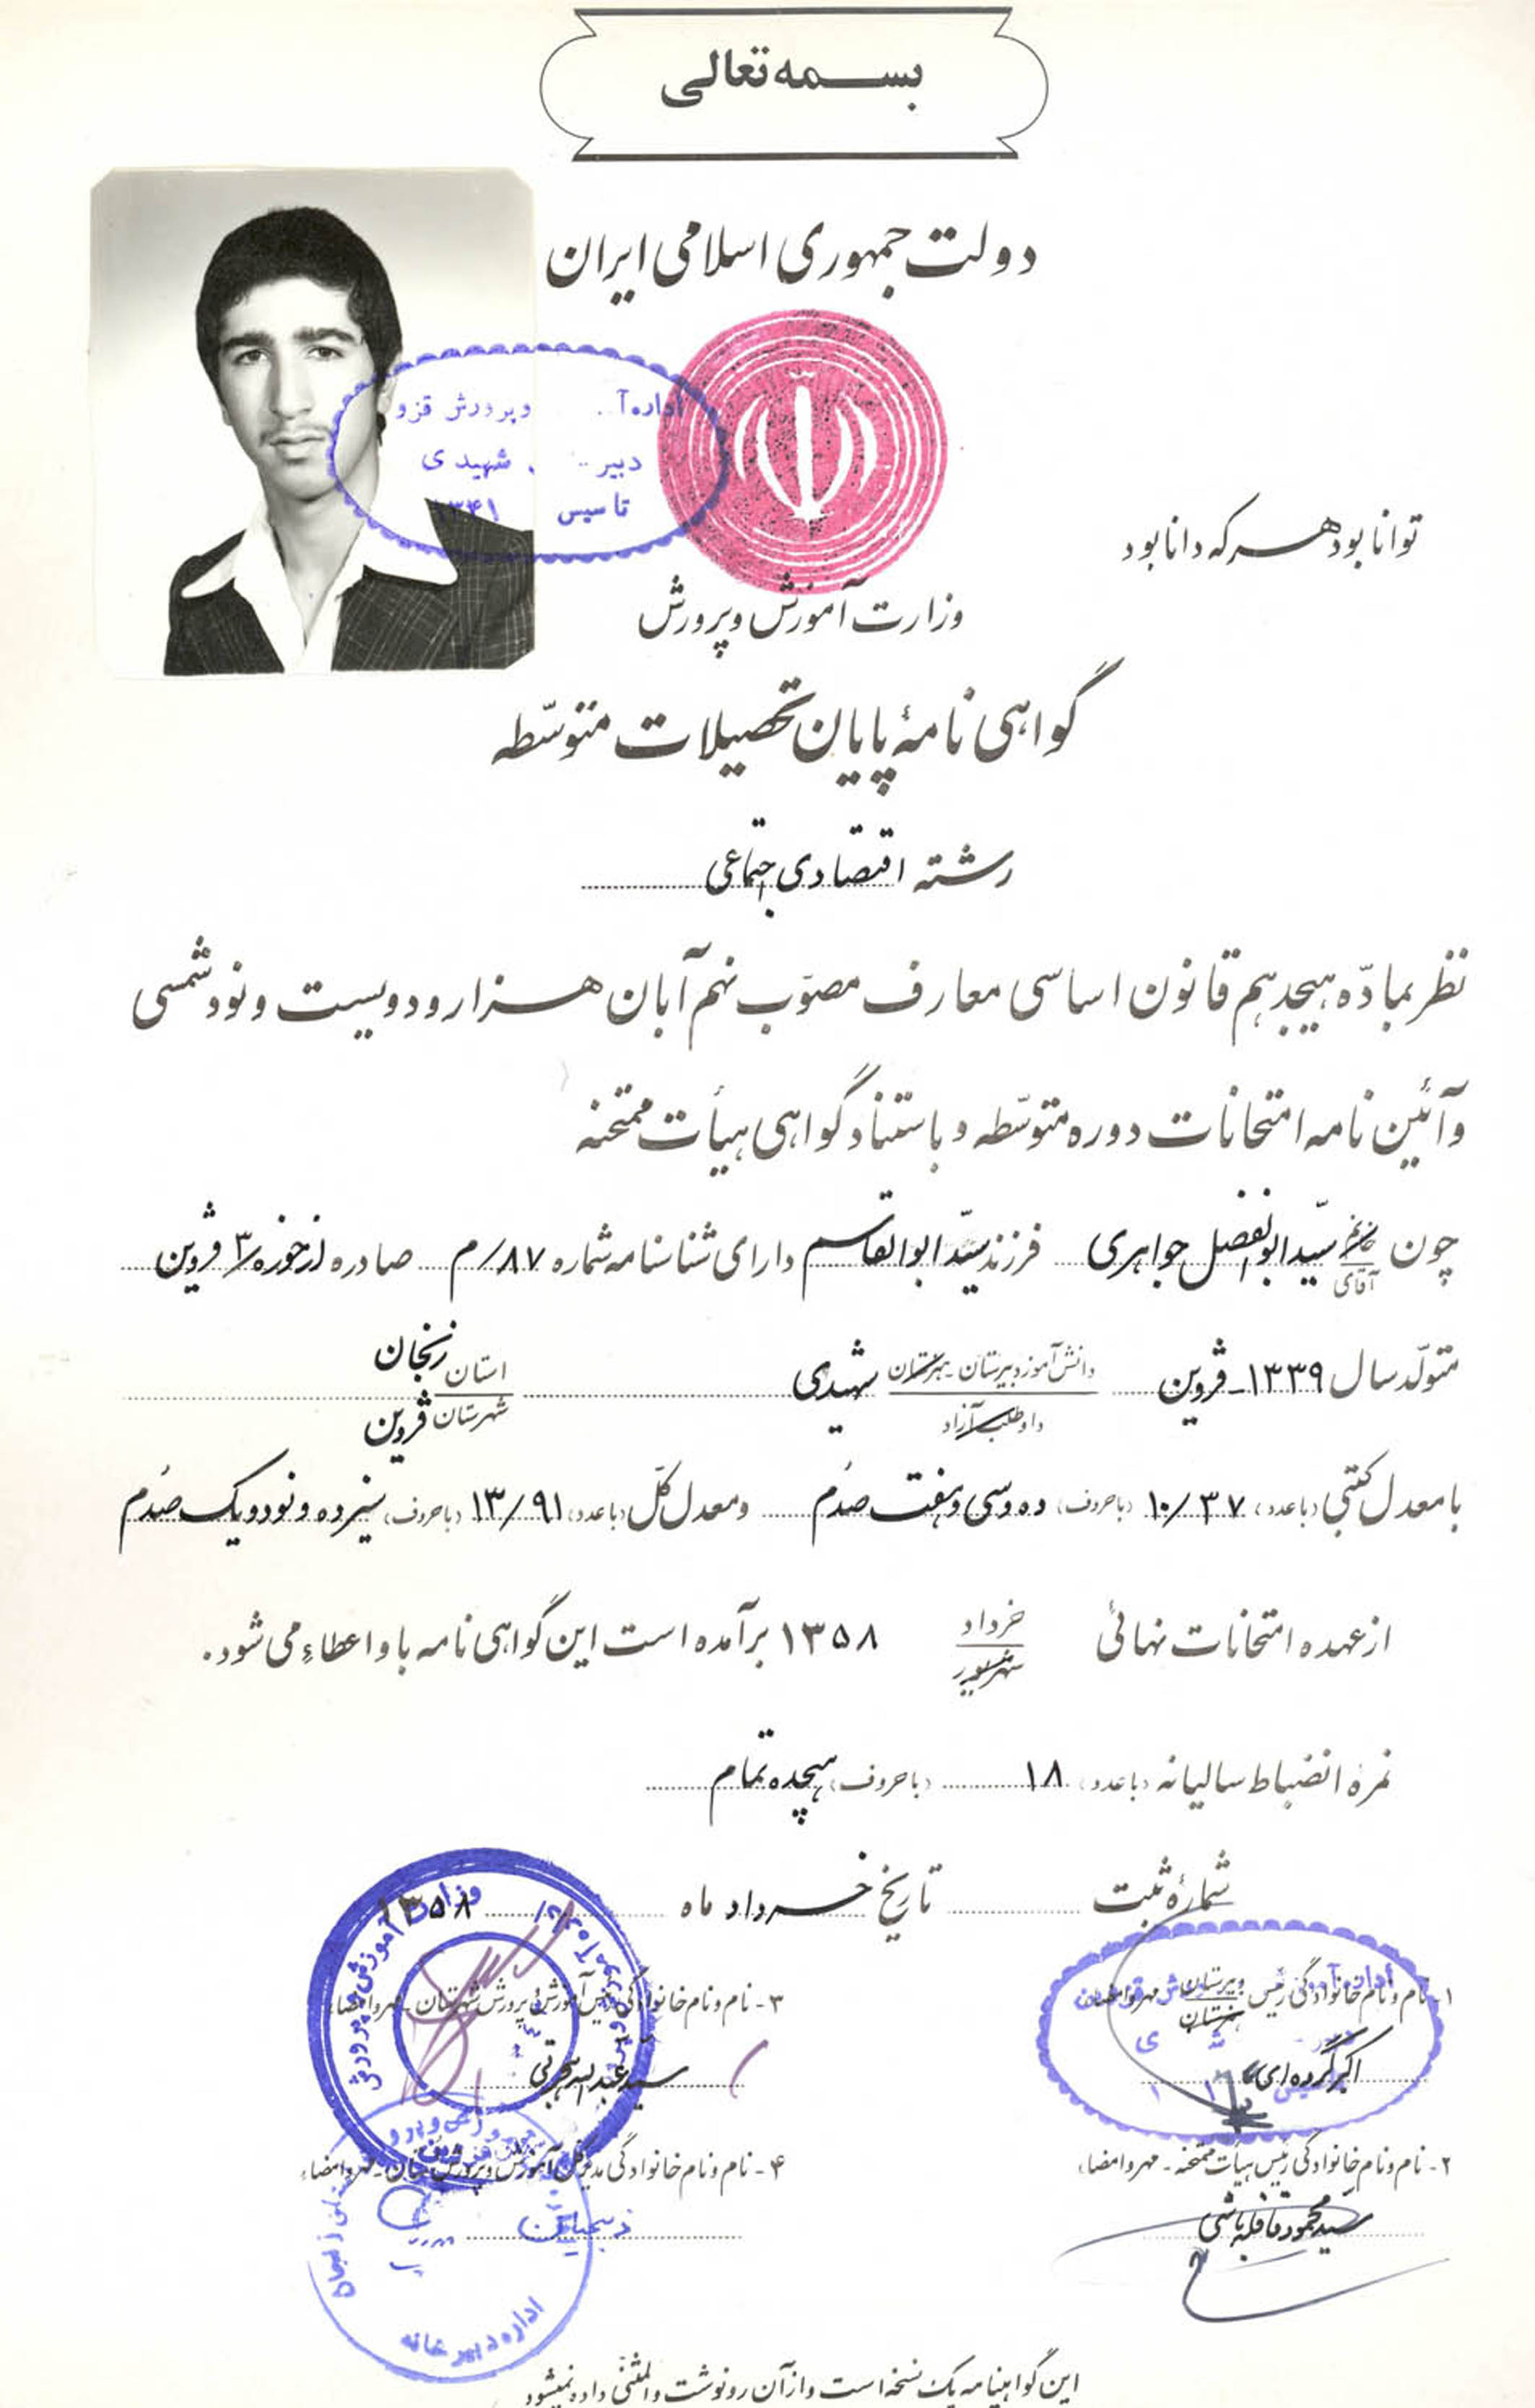 بسمه تعالی
دولت جمهوری اسلامی ایران
اداره آ وپرورش قزو
دبیر شهیدی
تاسیس ۱۳۴۱
توانا بود هر که دانا بود
وزارت آموزش و پرورش
گواهی نامهٔ پایان تحصیلات متوسّطه
رشته اقتصادی اجتماعی
نظر بمادّه هیجدهم قانون اساسی معارف مصوّب نهم آبان هزار و دویست و نود شمسی
و آئین نامه امتحانات دوره متوسّطه و باستناد گواهی هیأت ممتحنه
چون خانم آقای سیّد ابوالفضل جواهری فرزند سیّد ابوالقاسم دارای شناسنامه شماره ۸۷/م صادره از حوزه ۳ قزوین
متولّد سال ۱۳۳۹ - قزوین دانش آموز دبیرستان - هنرستان داوطلب آزاد شهیدی استان زنجان شهرستان قزوین
با معدل کتبی (با عدد) ۱۰/۳۷ (با حروف) ده و سی و هفت صدم و معدل کلّ (با عدد) ۱۳/۹۱ (با حروف) سیزده و نود و یک صدم
از عهده امتحانات نهائی خرداد شهریور ۱۳۵۸ برآمده است این گواهی نامه باو اعطاء می شود.
نمرهٔ انضباط سالیانه (با عدد) ۱۸ (با حروف) هیجده تمام
شمارهٔ ثبت تاریخ خرداد ماه ۱۳۵۸
۱- نام و نام خانوادگی رئیس دبیرستان هنرستان - مهر و امضاء
اکبر گرده ای
۲- نام و نام خانوادگی رئیس هیأت ممتحنه - مهر و امضاء
سید محمود قافله باشی
۳- نام و نام خانوادگی رئیس آموزش و پرورش شهرستان - مهر و امضاء
سید عبدالله
وزارت آموزش و پرورش
۴- نام و نام خانوادگی مدیر کل آموزش و پرورش استان - مهر و امضاء
اداره دبیرخانه
این گواهینامه یک نسخه است و از آن رونوشت و المثنّی داده نمیشود